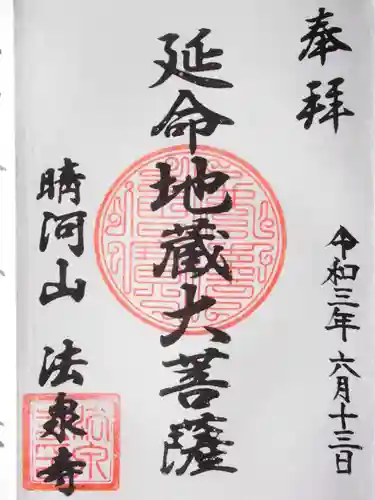 奉拝
令和三年六月十三日
延命地蔵大菩薩
晴河山 法泉寺